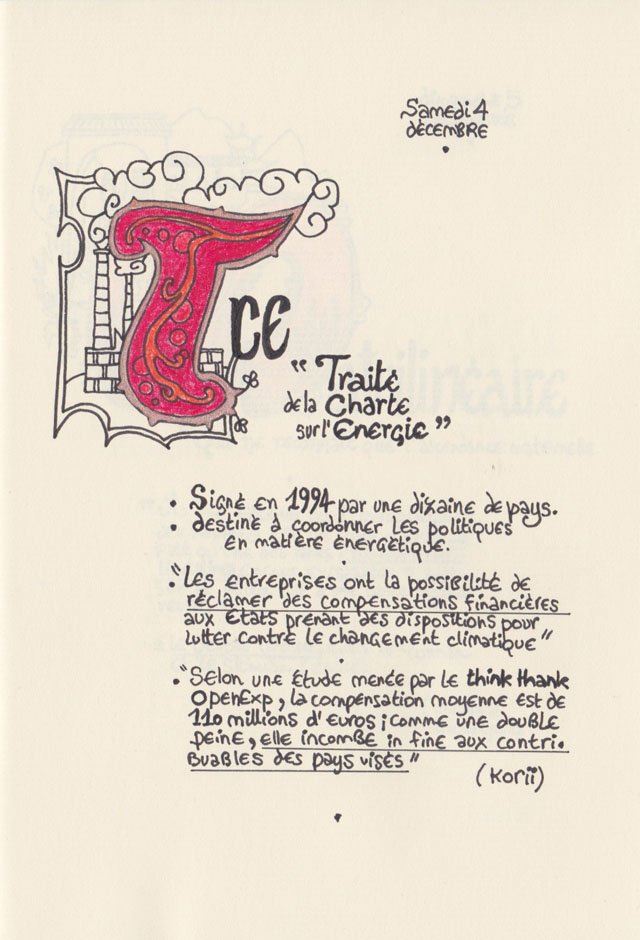 Samedi 4
décembre
TCE
"Traité
de la Charte
sur l'Energie"
• Signé en 1994 par une dizaine de pays.
• destiné à coordonner les politiques
en matière énergétique.
• "Les entreprises ont la possibilité de
réclamer des compensations financières
aux Etats prenant des dispositions pour
lutter contre le changement climatique"
• "Selon une étude menée par le think thank
OpenExp, la compensation moyenne est de
110 millions d'euros ; comme une double
peine, elle incombe in fine aux contri-
buables des pays visés"
(Korii)